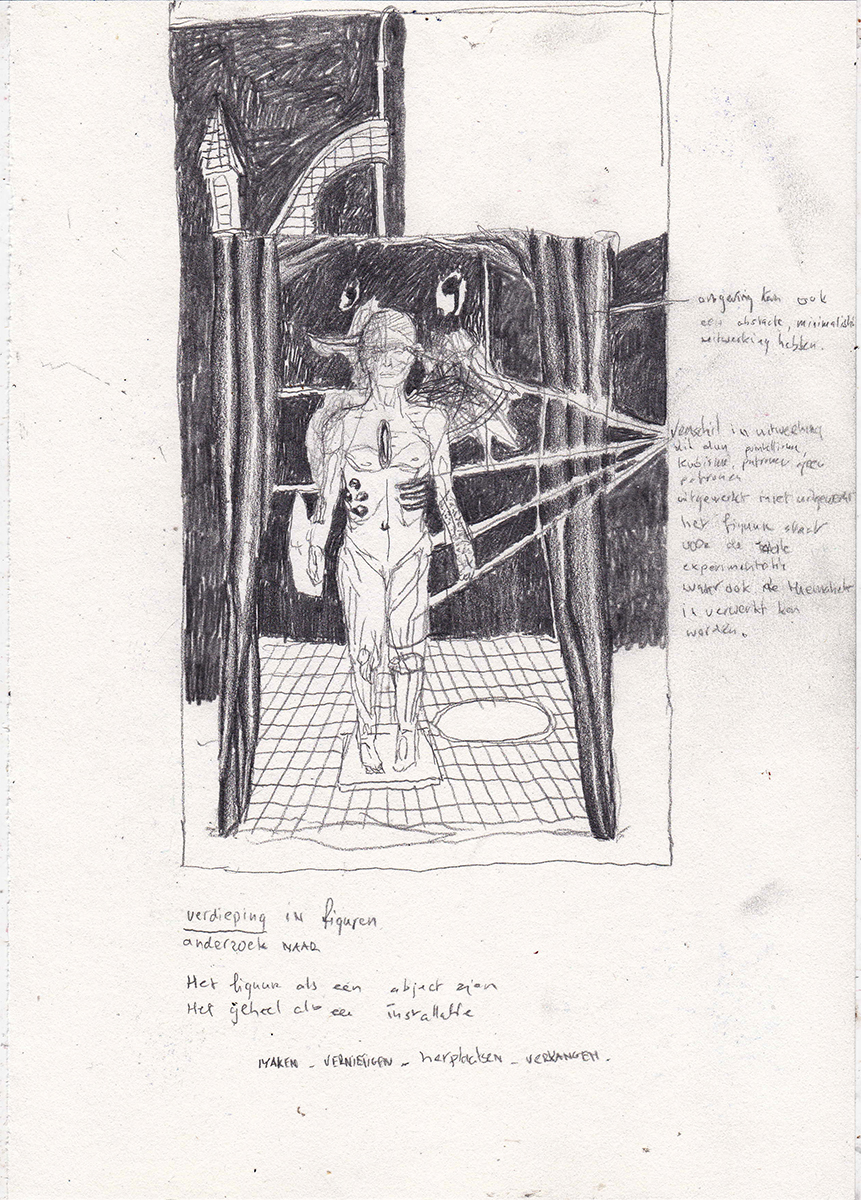 omgeving kan ook
een abstracte, minimalistische
uitwerking hebben.
verschil in uitwerking
kubisme, patronen
patronen
uitgewerkt niet uitgewerkt
het figuur staat
voor de
experimentatie
waar ook de thematiek
in verwerkt kan
worden.
verdieping in figuren
onderzoek NAAR
Het figuur als een object zien
Het geheel als een installatie
MAKEN - VERNIETIGEN - herplaatsen - VERVANGEN.